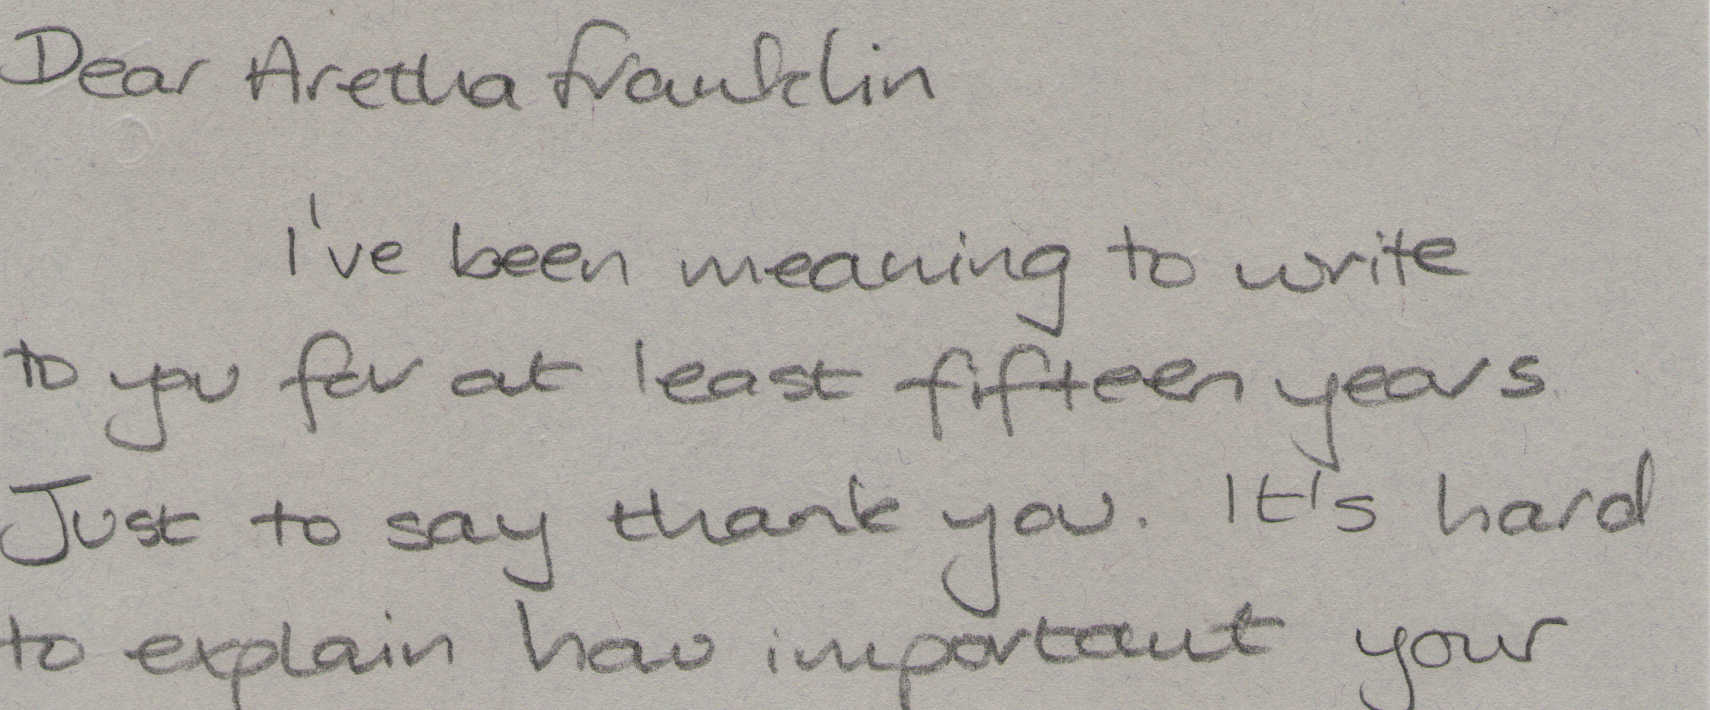 Dear Aretha Franklin
I've been meaning to write
to you for at least fifteen years.
Just to say thank you. It's hard
to explain how important your